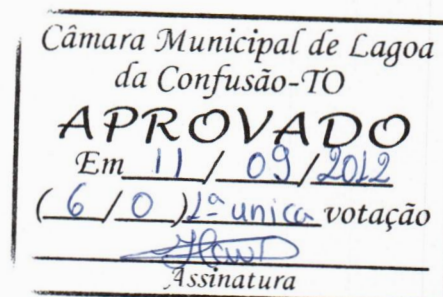 Câmara Municipal de Lagoa
da Confusão-TO
APROVADO
Em 11 / 09 / 2012
( 6 / 0 ) 1ª unica votação
Assinatura